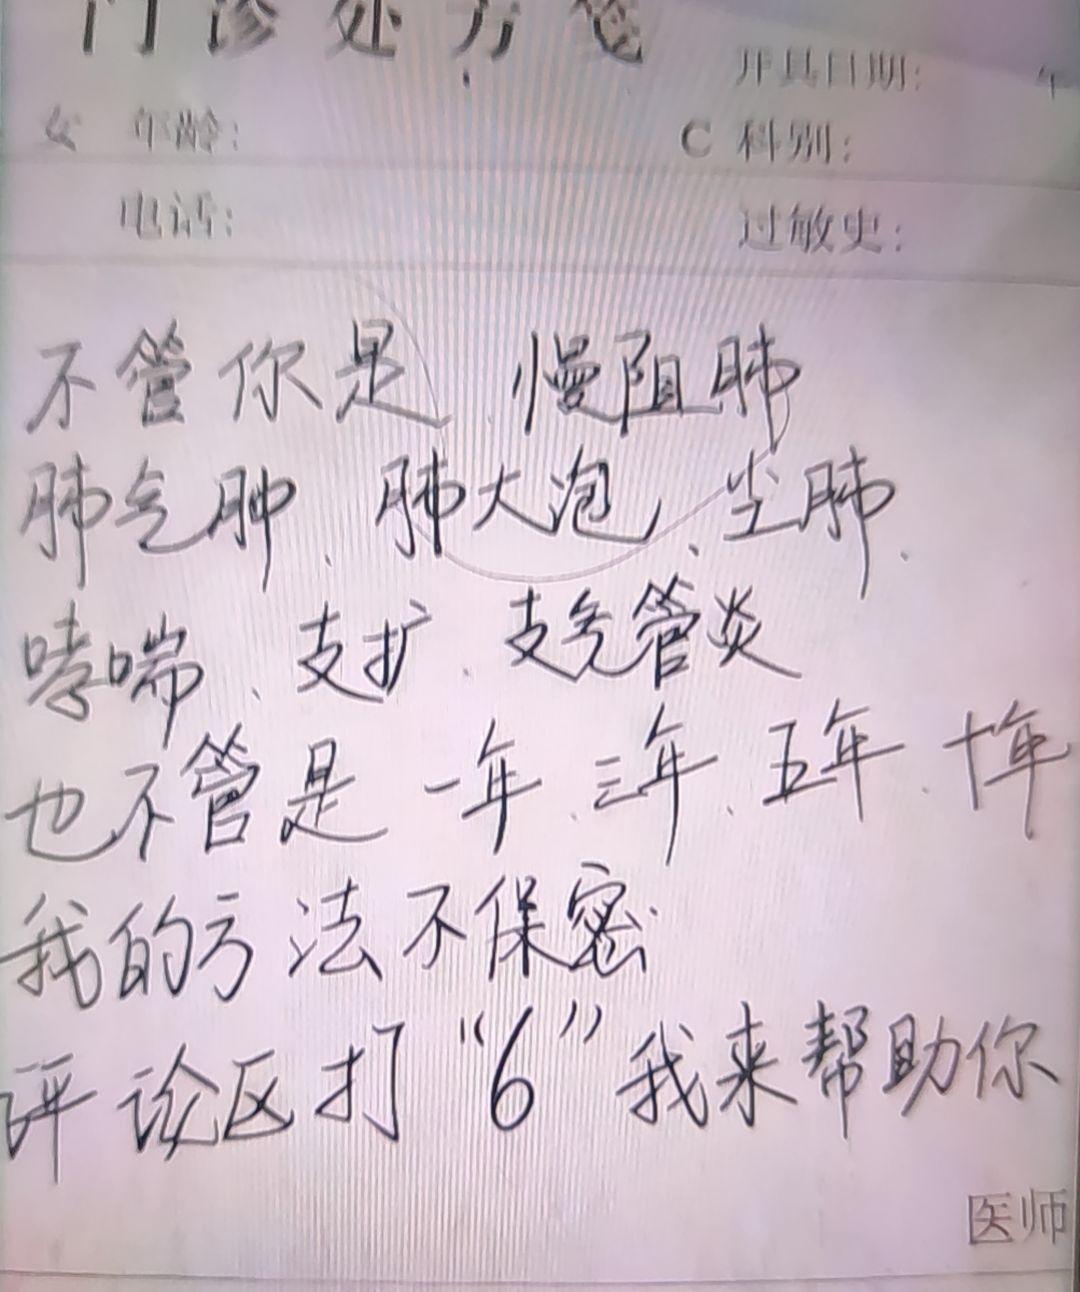 门诊处方笺
开具日期: 年
女 年龄: C 科别:
电话: 过敏史:
不管你是 慢阻肺
肺气肿、肺大泡、尘肺、
哮喘、支扩、支气管炎
也不管是一年、三年、五年、十年
我的方法不保密
评论区打“6”我来帮助你
医师